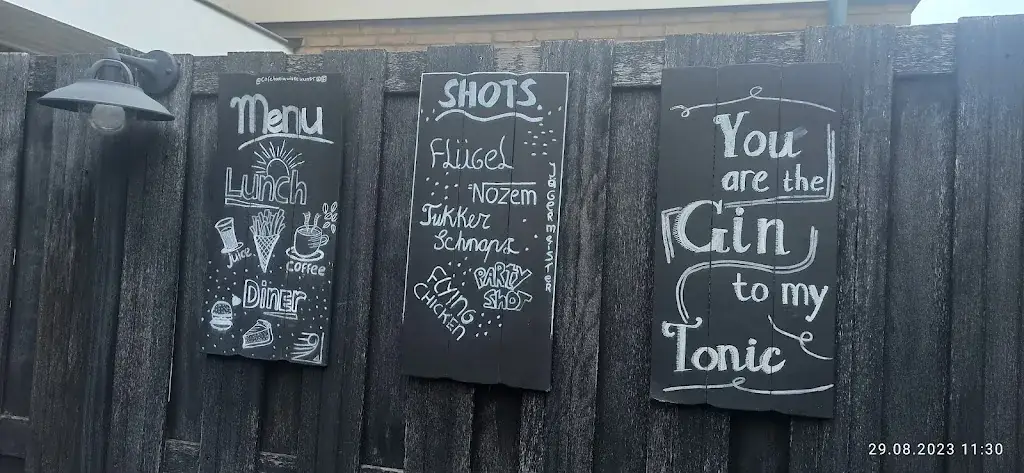 Menu
Lunch
Juice
Coffee
Diner
SHOTS.
FLÜGEL
NOZEM
Tukker
Schnaps
JÄGERMEISTER
PARTY
SHOT
FLYING
CHICKEN
You
are the
Gin
to my
Tonic
29.08.2023 11:30